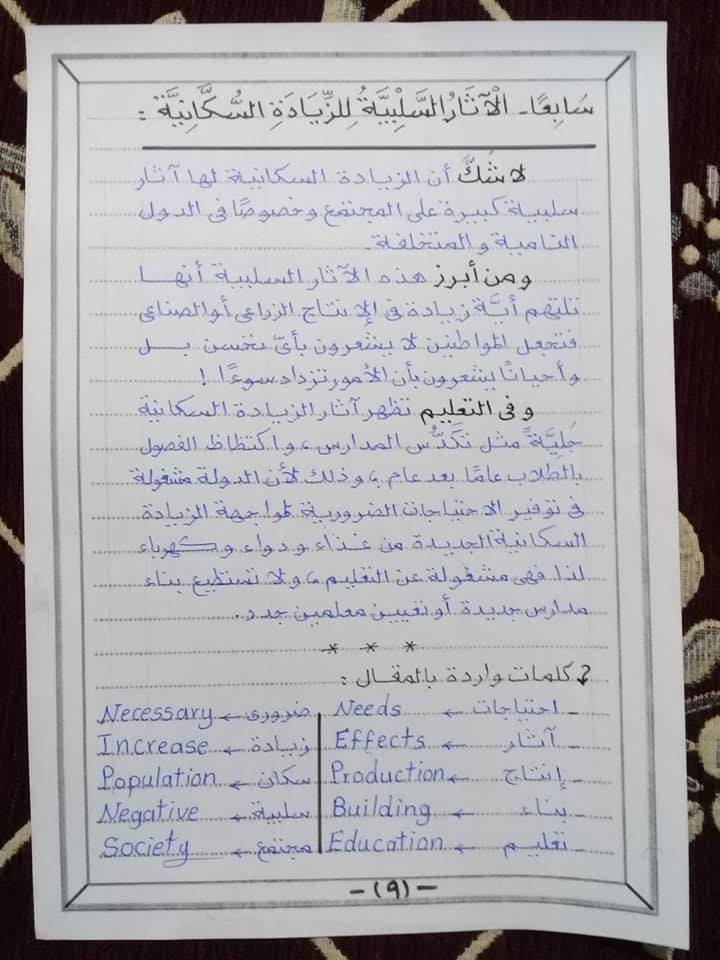 سَابِعًا - الْآثَارُ السَّلْبِيَّةُ لِلزِّيَادَةِ السُّكَّانِيَّةِ :
لا شكَّ أن الزيادة السكانية لها آثار
سلبية كبيرة على المجتمع وخصوصًا فى الدول
النامية والمتخلفة.
ومن أبرز هذه الآثار السلبية أنها
تلتهم أيَّة زيادة فى الإنتاج الزراعى أو الصناعى
فتجعل المواطنين لا يشعرون بأىّ تحسن بل
وأحيانًا يشعرون بأن الأمور تزداد سوءًا !
وفى التعليم تظهر آثار الزيادة السكانية
جَليَّةً مثل تكَدُّس المدارس، واكتظاظ الفصول
بالطلاب عامًا بعد عام، وذلك لأن الدولة مشغولة
فى توفير الاحتياجات الضرورية لمواجهة الزيادة
السكانية الجديدة من غذاء ودواء وكهرباء
لذا فهى مشغولة عن التعليم، ولا تستطيع بناء
مدارس جديدة أو تعيين معلمين جدد.
* * *
كلمات واردة بالمقال :
- احتياجات ← Needs | ضرورى ← Necessary
- آثار ← Effects | زيادة ← Increase
- إنتاج ← Production | سكان ← Population
- بناء ← Building | سلبية ← Negative
- تعليم ← Education | مجتمع ← Society
- (٩) -